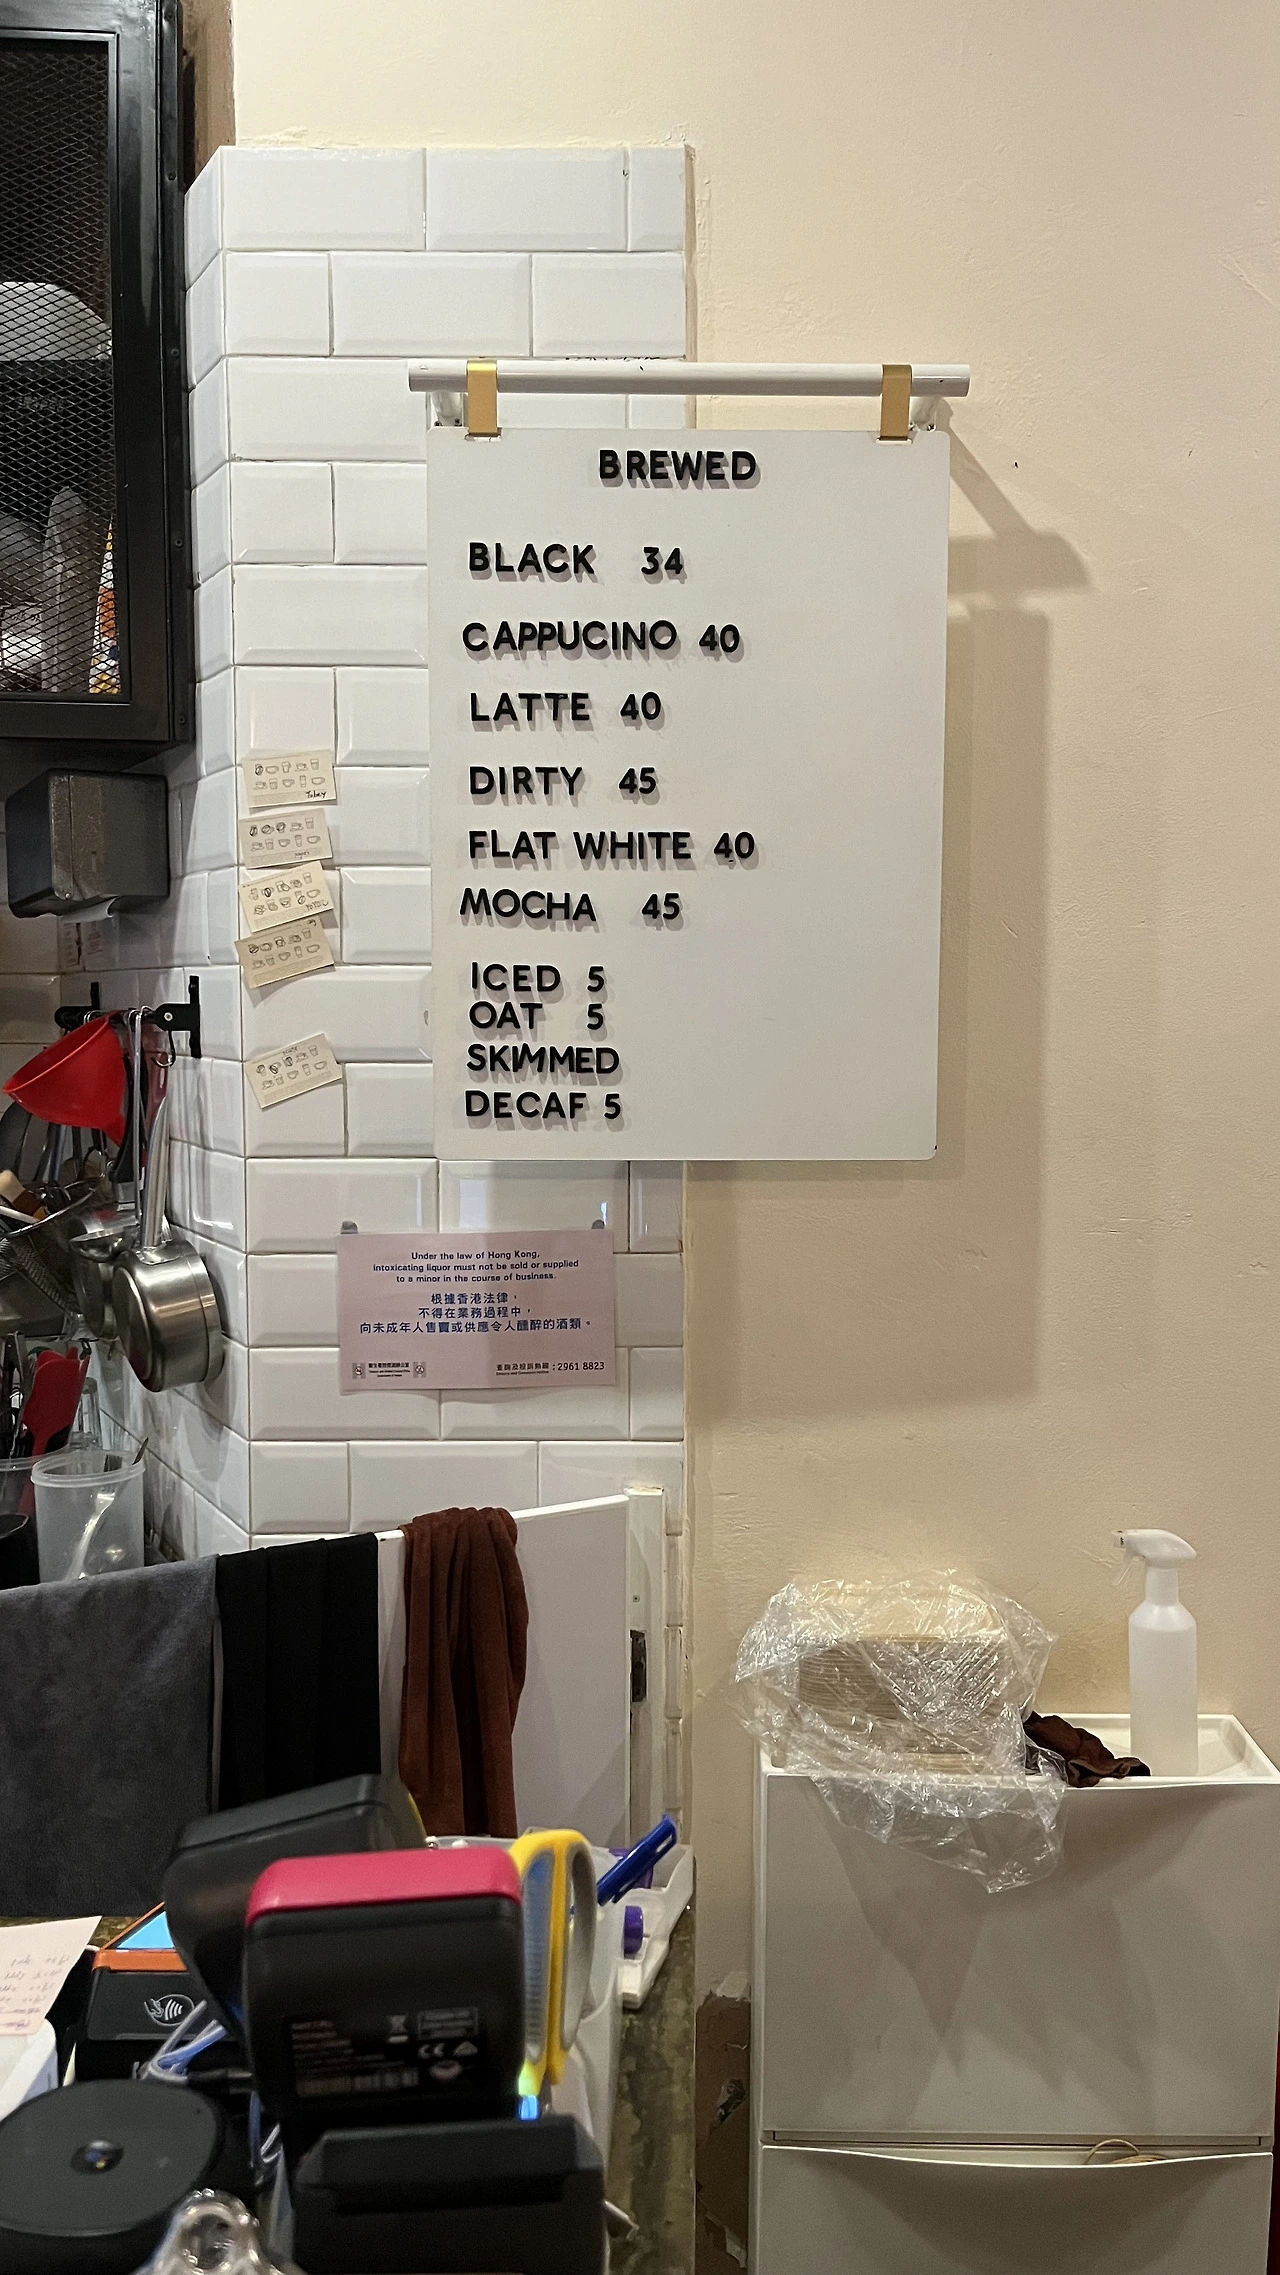 BREWED
BLACK 34
CAPPUCINO 40
LATTE 40
DIRTY 45
FLAT WHITE 40
MOCHA 45
ICED 5
OAT 5
SKIMMED
DECAF 5
Tobey
Under the law of Hong Kong,
intoxicating liquor must not be sold or supplied
to a minor in the course of business.
根據香港法律，
不得在業務過程中，
向未成年人售賣或供應令人醺醉的酒類。
查詢及投訴熱線：2961 8823
Enquiry and Complaint Hotline